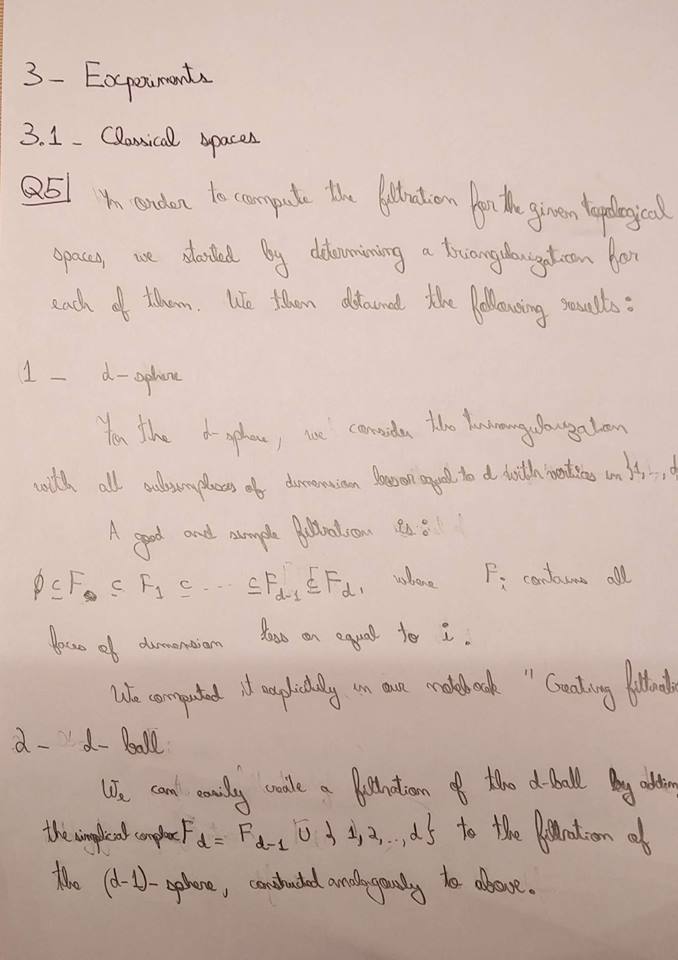 3 - Experiments
3.1 - Classical spaces
Q5| In order to compute the filtration for the given topological
spaces, we started by determining a triangularization for
each of them. We then obtained the following results:
1 - d-sphere
For the d-sphere, we consider the triangularization
with all subsimplices of dimension less or equal to d with vertices in {1,..,d
A good and simple filtration is:
∅ ⊆ F₀ ⊆ F₁ ⊆ ... ⊆ F_{d-1} ⊆ F_d, where F_i contains all
faces of dimension less or equal to i.
We computed it explicitely in our notebook "Creating filtrati
2 - d-ball
We can easily create a filtration of the d-ball by adding
the simplical complex F_d = F_{d-1} ∪ {1,2,..,d} to the filtration of
the (d-1)-sphere, constructed analogously to above.